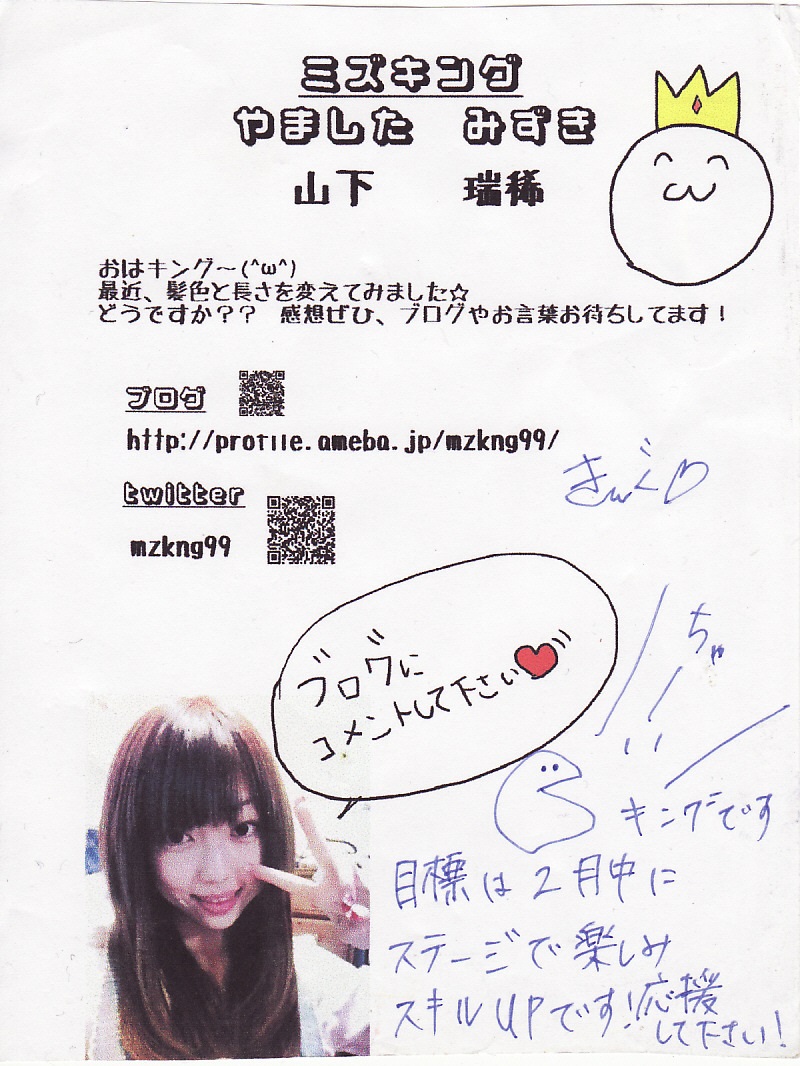 ミズキング
やました みずき
山下 瑞稀
おはキング～(^ω^)
最近、髪色と長さを変えてみました☆
どうですか？？ 感想ぜひ、ブログやお言葉お待ちしてます！
ブログ
http://profile.ameba.jp/mzkng99/
きんぐ♡
twitter
mzkng99
ブログに
コメントして下さい♥
ちゃ
キングです
目標は2月中に
ステージで楽しみ
スキルUPです！応援
して下さい！